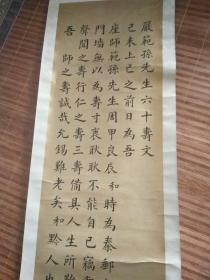 嚴範孫先生六十壽文
己未上巳之前日為吾
座師範孫先生周甲良辰和時為秦郵
門墻無以為壽寸衷耿耿不能自已竊
聲聞之壽行仁之壽三壽備具人生所
吾 師之壽誠哉允錫難老矣和黔人也